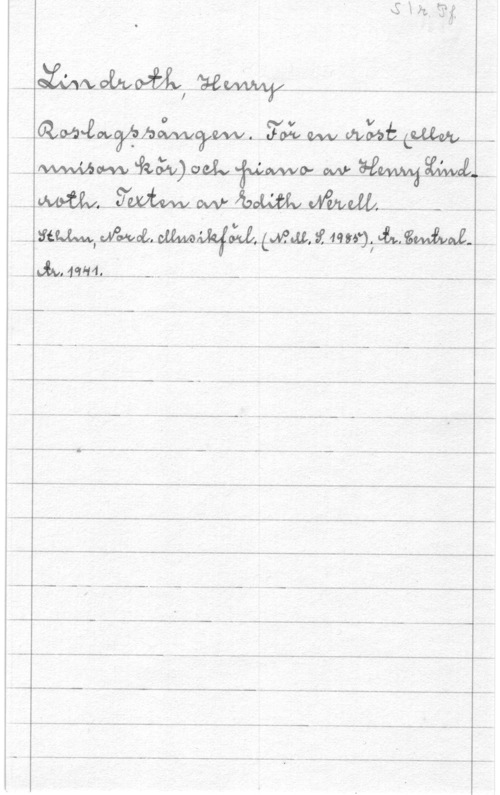 S 1 r. Pf.
Lindroth, Henry
Roslagssången. För en röst (eller
unison kör) och piano av Henry Lind-
roth. Texten av Edith Nerell.
Sthlm, Nord. Musikförl. (N. M. S. 1985), tr. Central-
tr. 1941.